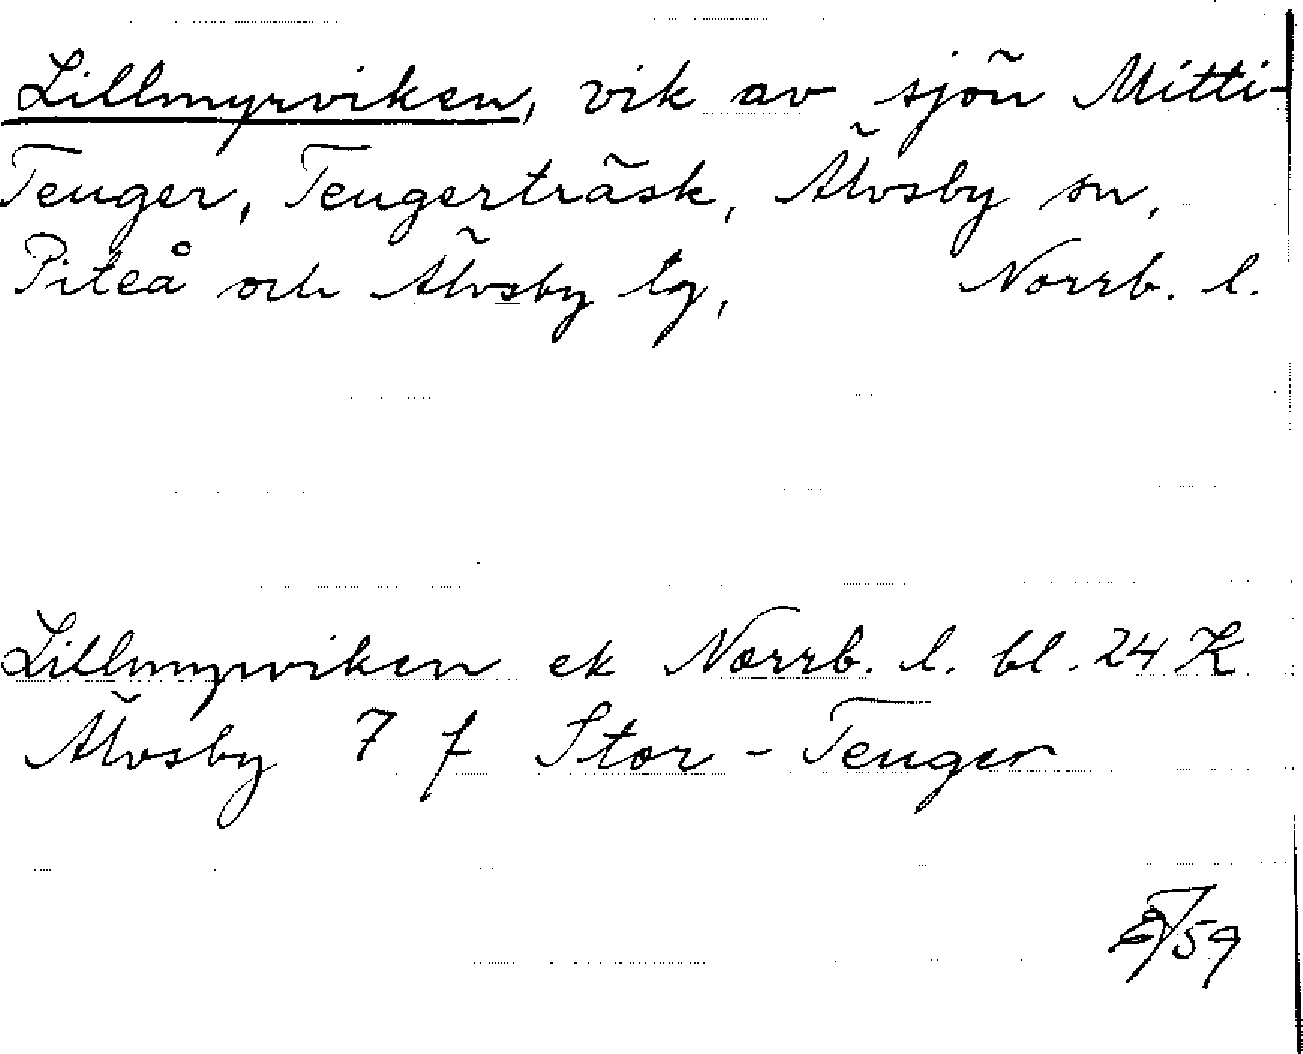 Lillmyrviken, vik av sjön Mitti-
Teuger, Teugerträsk, Älvsby sn,
Piteå och Älvsby lg, Norrb. l.
Lillmyrviken ek Norrb. l. bl. 24 K
Älvsby 7 f Stor-Teuger
/59